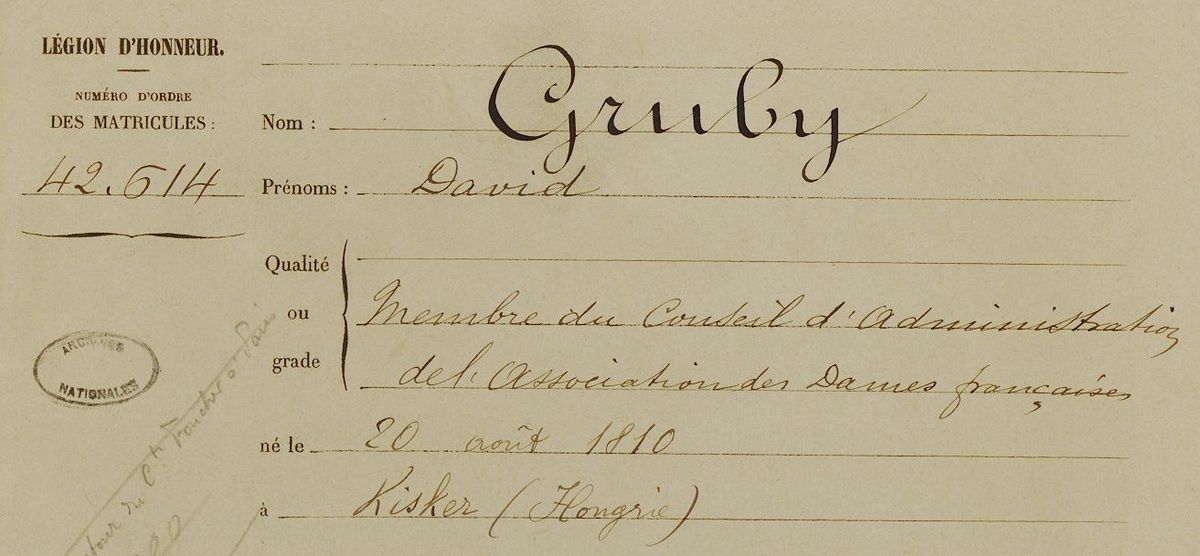 LÉGION D'HONNEUR.
NUMÉRO D'ORDRE
DES MATRICULES :
42.614
Nom : Gruby
Prénoms : David
Qualité
ou
grade
Membre du Conseil d'Administration
de l'Association des Dames françaises
né le 20 août 1810
à Kisker (Hongrie)
ARCHIVES
NATIONALES